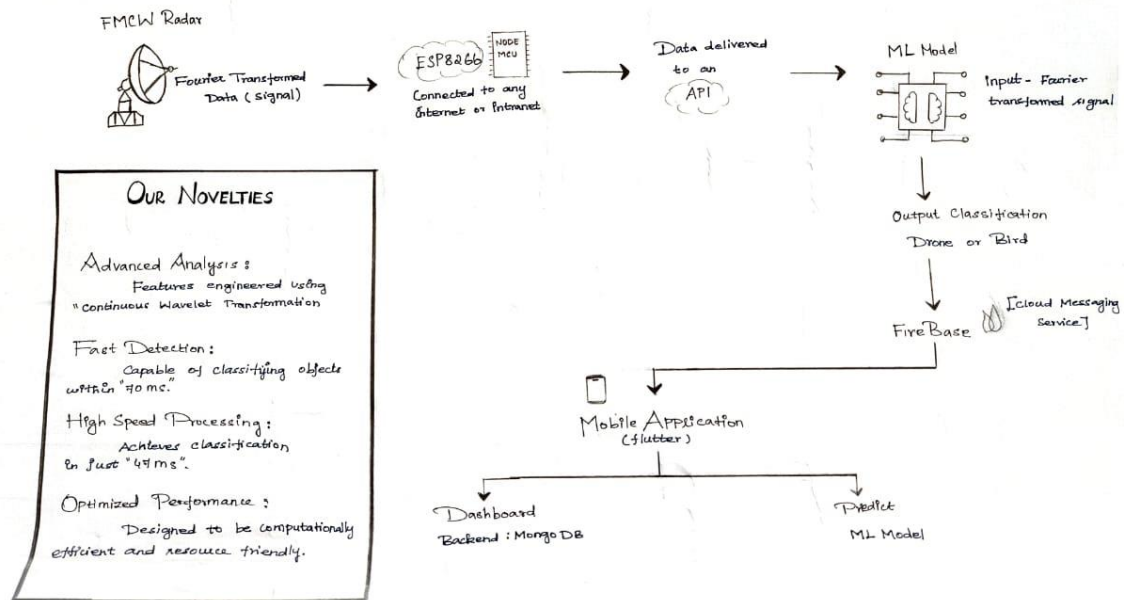 FMCW Radar
Fourier Transformed
Data (signal)
ESP8266
NODE
MCU
Connected to any
Internet or Intranet
Data delivered
to an
API
ML Model
Input - Fourier
transformed signal
Output Classification
Drone or Bird
FireBase
[Cloud Messaging
Service]
Mobile Application
(flutter)
Dashboard
Backend : MongoDB
Predict
ML Model
OUR NOVELTIES
Advanced Analysis :
Features engineered using
"Continuous Wavelet Transformation
Fast Detection :
Capable of classifying objects
within "70 ms."
High Speed Processing :
Achieves classification
in just "47 ms".
Optimized Performance :
Designed to be computationally
efficient and resource friendly.